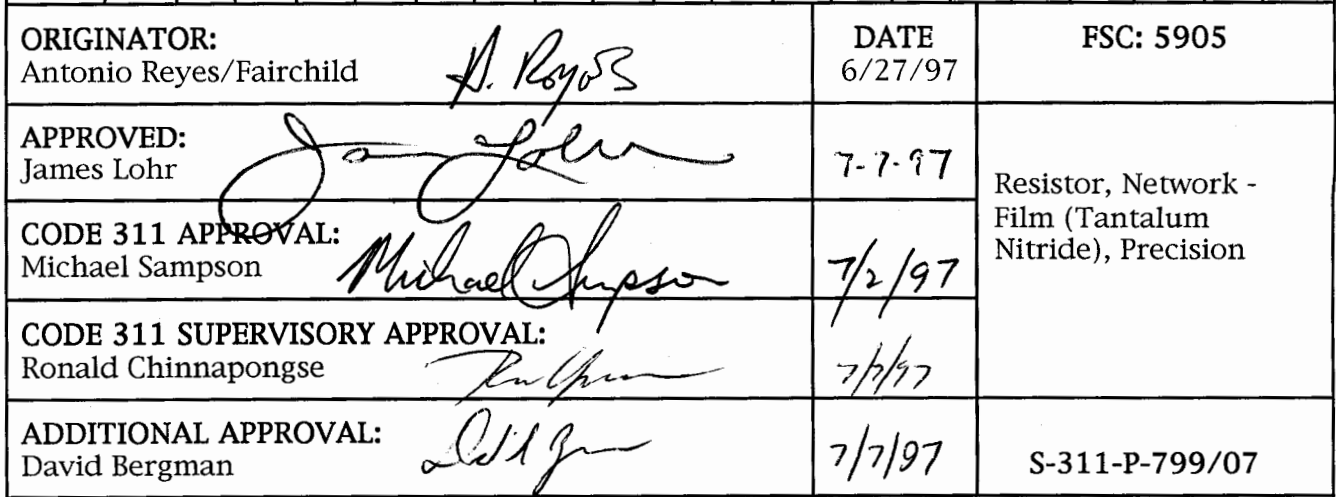 ORIGINATOR:
Antonio Reyes/Fairchild
A. Reyes
DATE
6/27/97
FSC: 5905
APPROVED:
James Lohr
7-7-97
Resistor, Network -
Film (Tantalum
Nitride), Precision
CODE 311 APPROVAL:
Michael Sampson
Michael Sampson
7/2/97
CODE 311 SUPERVISORY APPROVAL:
Ronald Chinnapongse
7/7/97
ADDITIONAL APPROVAL:
David Bergman
7/7/97
S-311-P-799/07